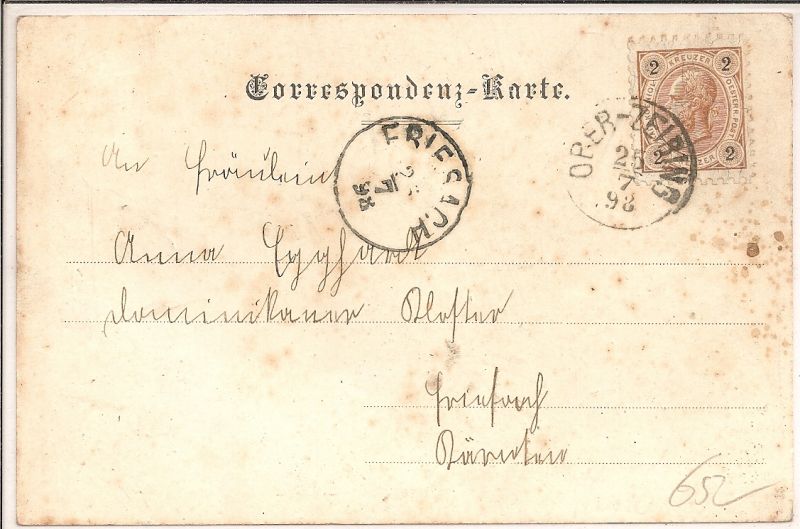 Correspondenz-Karte.
2 KREUZER 2
2 2
OBER-ZEIRING
25
7
98
FRIESACH
98
An Fräulein
Anna Egghardt
Dominikaner Kloster
Friesach
Kärnten
652